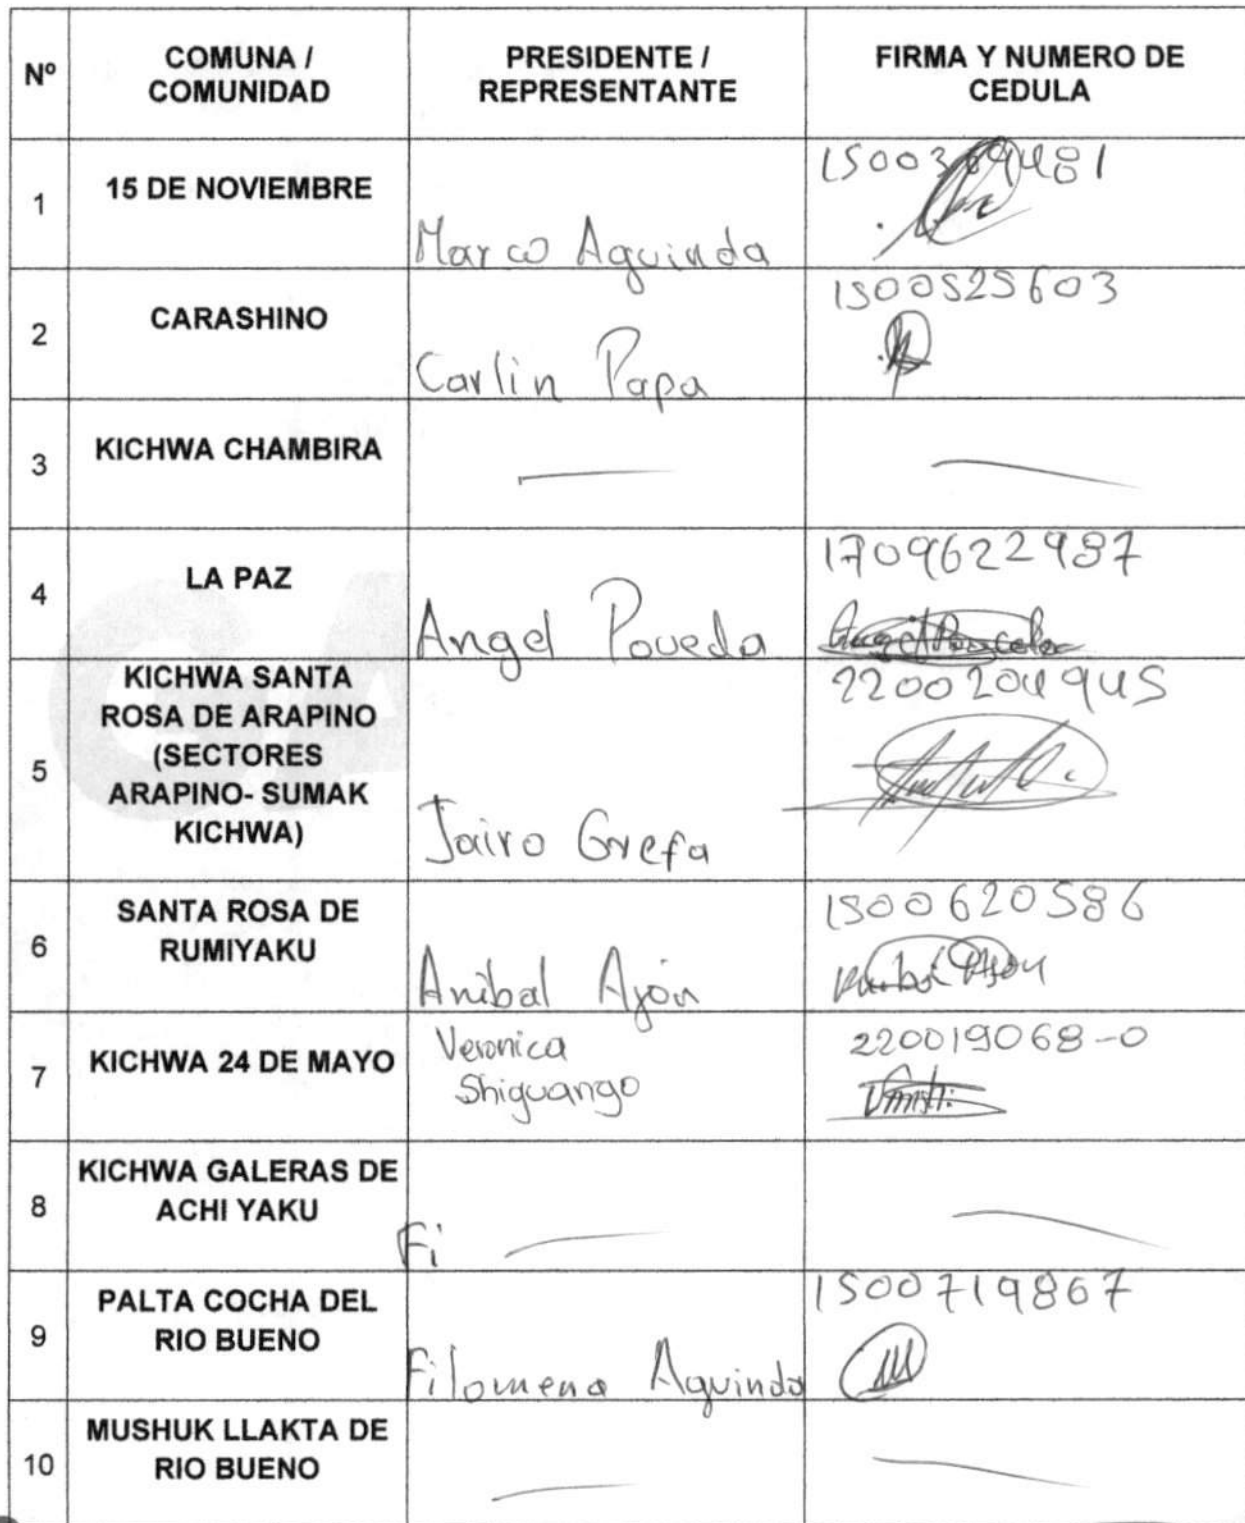 Nº
COMUNA /
COMUNIDAD
PRESIDENTE /
REPRESENTANTE
FIRMA Y NUMERO DE
CEDULA
1
15 DE NOVIEMBRE
Marco Aguinda
2
CARASHINO
Carlin Papa
1500525603
3
KICHWA CHAMBIRA
4
LA PAZ
Angel Poveda
1709622987
5
KICHWA SANTA
ROSA DE ARAPINO
(SECTORES
ARAPINO- SUMAK
KICHWA)
Jairo Grefa
2200204945
6
SANTA ROSA DE
RUMIYAKU
Anibal Ajón
1500620586
7
KICHWA 24 DE MAYO
Veronica
Shiguango
220019068-0
8
KICHWA GALERAS DE
ACHI YAKU
Fi
9
PALTA COCHA DEL
RIO BUENO
Filomena Aguinda
1500719867
10
MUSHUK LLAKTA DE
RIO BUENO